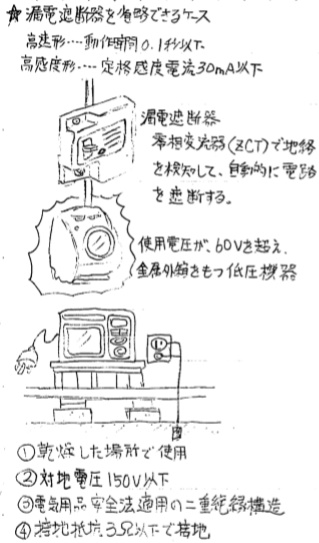 ☆漏電遮断器を省略できるケース
高速形‥‥動作時間0.1秒以下
高感度形‥‥定格感度電流30mA以下
漏電遮断器
零相変流器(ZCT)で地絡
を検知して、自動的に電路
を遮断する。
使用電圧が、60Vを超え、
金属外箱をもつ低圧機器
①乾燥した場所で使用
②対地電圧150V以下
③電気用品安全法適用の二重絶縁構造
④接地抵抗3Ω以下で接地